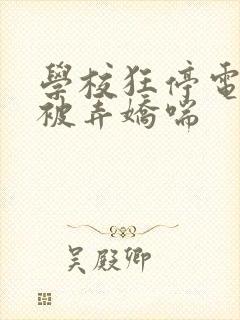 學校狂停電
被弄嬌喘
吴殿卿